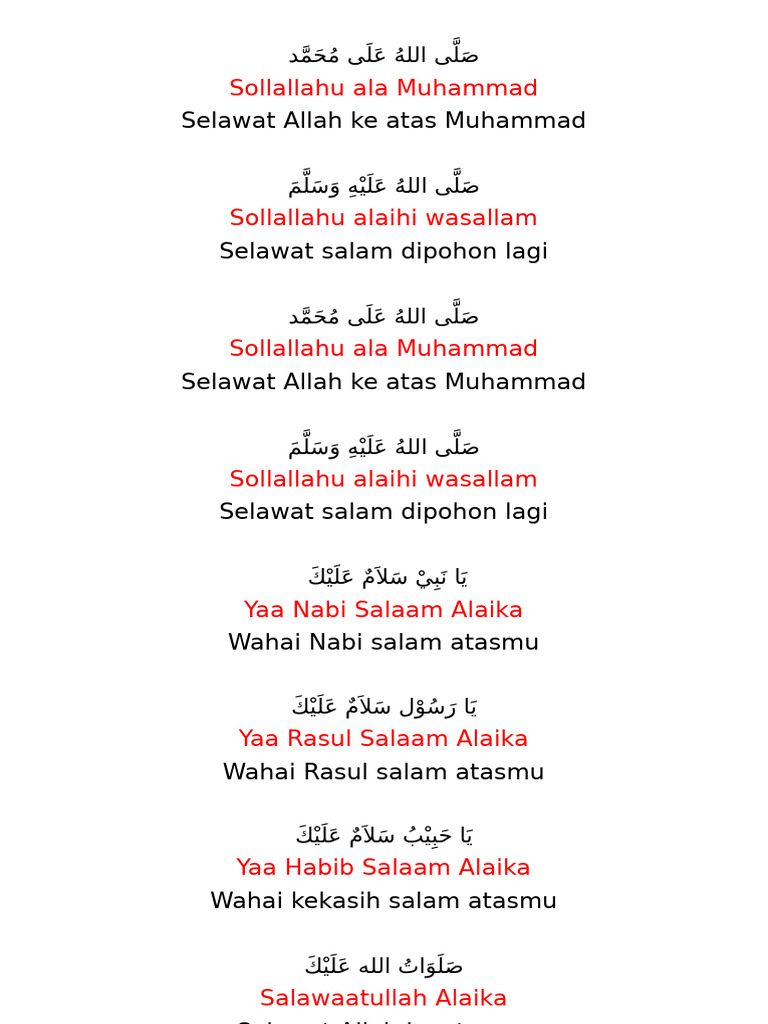 صَلَّى اللهُ عَلَى مُحَمَّد
Sollallahu ala Muhammad
Selawat Allah ke atas Muhammad
صَلَّى اللهُ عَلَيْهِ وَسَلَّمَ
Sollallahu alaihi wasallam
Selawat salam dipohon lagi
صَلَّى اللهُ عَلَى مُحَمَّد
Sollallahu ala Muhammad
Selawat Allah ke atas Muhammad
صَلَّى اللهُ عَلَيْهِ وَسَلَّمَ
Sollallahu alaihi wasallam
Selawat salam dipohon lagi
يَا نَبِيْ سَلاَمٌ عَلَيْكَ
Yaa Nabi Salaam Alaika
Wahai Nabi salam atasmu
يَا رَسُوْل سَلاَمٌ عَلَيْكَ
Yaa Rasul Salaam Alaika
Wahai Rasul salam atasmu
يَا حَبِيْبُ سَلاَمٌ عَلَيْكَ
Yaa Habib Salaam Alaika
Wahai kekasih salam atasmu
صَلَوَاتُ الله عَلَيْكَ
Salawaatullah Alaika